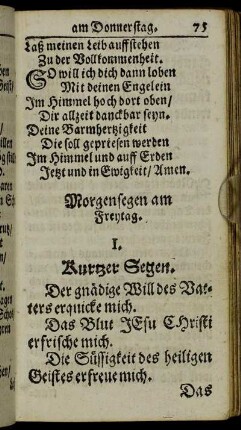 am Donnerstag. 75
Laß meinen Leib aufferstehen
Zu der Vollkommenheit.
SO will ich dich dann loben
Mit deinen Engelein
Im Himmel hoch dort oben/
Dir allzeit danckbar seyn.
Deine Barmhertzigkeit
Die soll gepriesen werden
Im Himmel und auff Erden
Jetzt und in Ewigkeit/ Amen.
Morgensegen am
Freytag.
I.
Kurtzer Segen.
Der gnädige Will des Vat-
ters erquicke mich.
Das Blut JEsu CHristi
erfrische mich.
Die Süssigkeit des heiligen
Geistes erfreue mich.
Das